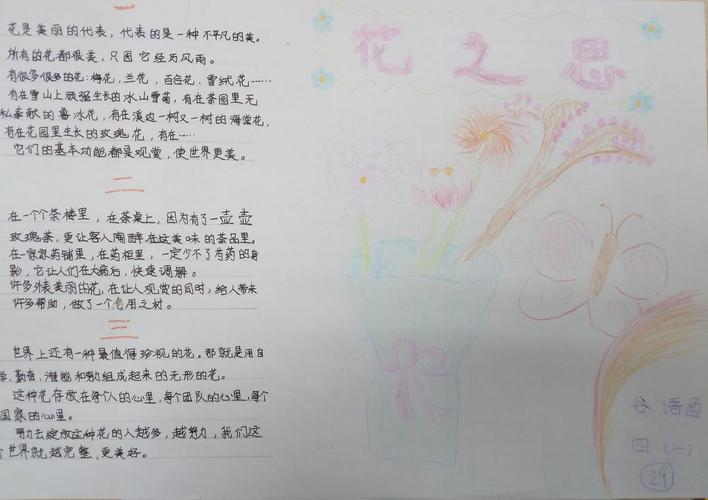 一
花是美丽的代表，代表的是一种不平凡的美。
所有的花都很美，只因它经历风雨。
有很多很多的花：梅花，兰花，百合花，雪绒花……
有在雪山上顽强生长的冰山雪菊，有在茶园里无
私奉献的喜水花，有在溪边一树又一树的海棠花，
有在花园里生长的玫瑰花，有在……
它们的基本功能都是观赏，使世界更美。
二
在一个个茶楼里，在茶桌上，因为有了一壶壶
玫瑰茶，更让客人陶醉在这美味的茶品里。
在一家家药铺里，在药柜里，一定少不了芍药的身
影，它让人们在大病后，快速调解。
许多外表美丽的花，在让人观赏的同时，给人带来
许多帮助，做了一个有用之材。
三
世界上还有一种最值得珍视的花。那就是用自
学，勤奋，潜能和努力组成起来的无形的花。
这种花存放在每个人的心里，每个团队的心里，每个
国家的心里。
努力去绽放这种花的人越多，越努力，我们这
个世界就越完整，更美好。
花之思
谷语
四（一）
24